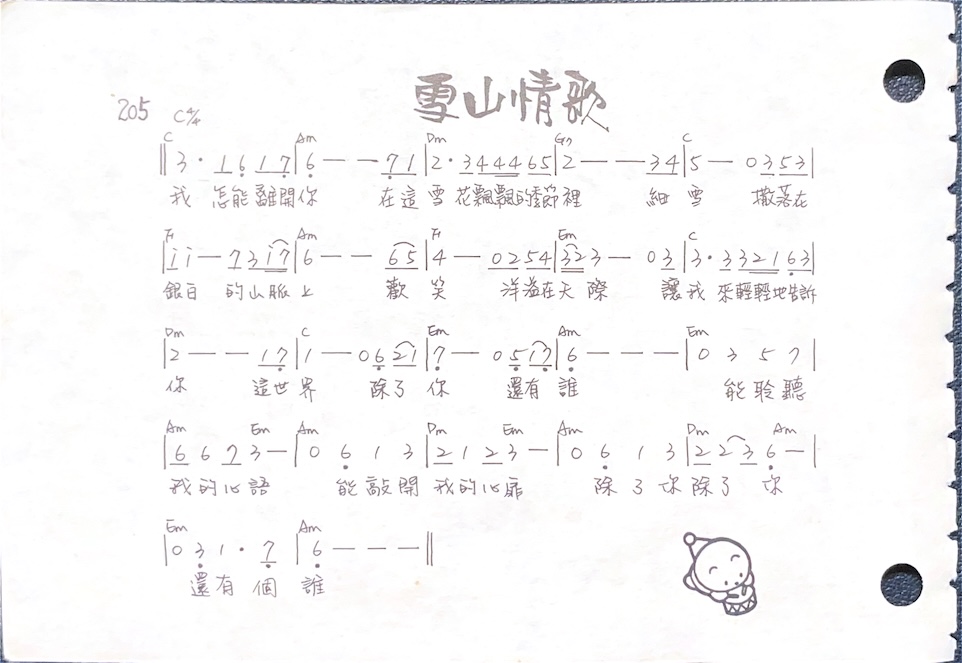 雪山情歌
205 C 4/4
C Am Dm G7 C
‖3· 1 6 1 7|6 — — 7 1|2· 3 4 4 4 6 5|2 — — 3 4|5 — 0 3 5 3|
我 怎能離開你 在這雪花飄飄的季節裡 細雪 撒落在
F Am F Em C
|i i — 7 3 i 7|6 — — 6 5|4 — 0 2 5 4|3 2 3 — 0 3|3· 3 3 2 1 6 3|
銀白 的山脈上 歡笑 洋溢在天際 讓我 來輕輕地告訴
Dm C Em Am Em
|2 — — 1 7|1 — 0 6 2 1|7 — 0 5 1 7|6 — — —|0 3 5 7|
你 這世界 除了你 還有誰 能聆聽
Am Em Am Dm Em Am Dm Am
|6 6 7 3 —|0 6 1 3|2 1 2 3 —|0 6 1 3|2 2 3 6 —|
我的心語 能敲開 我的心扉 除了你除了你
Em Am
|0 3 1· 7|6 — — —‖
還有個誰